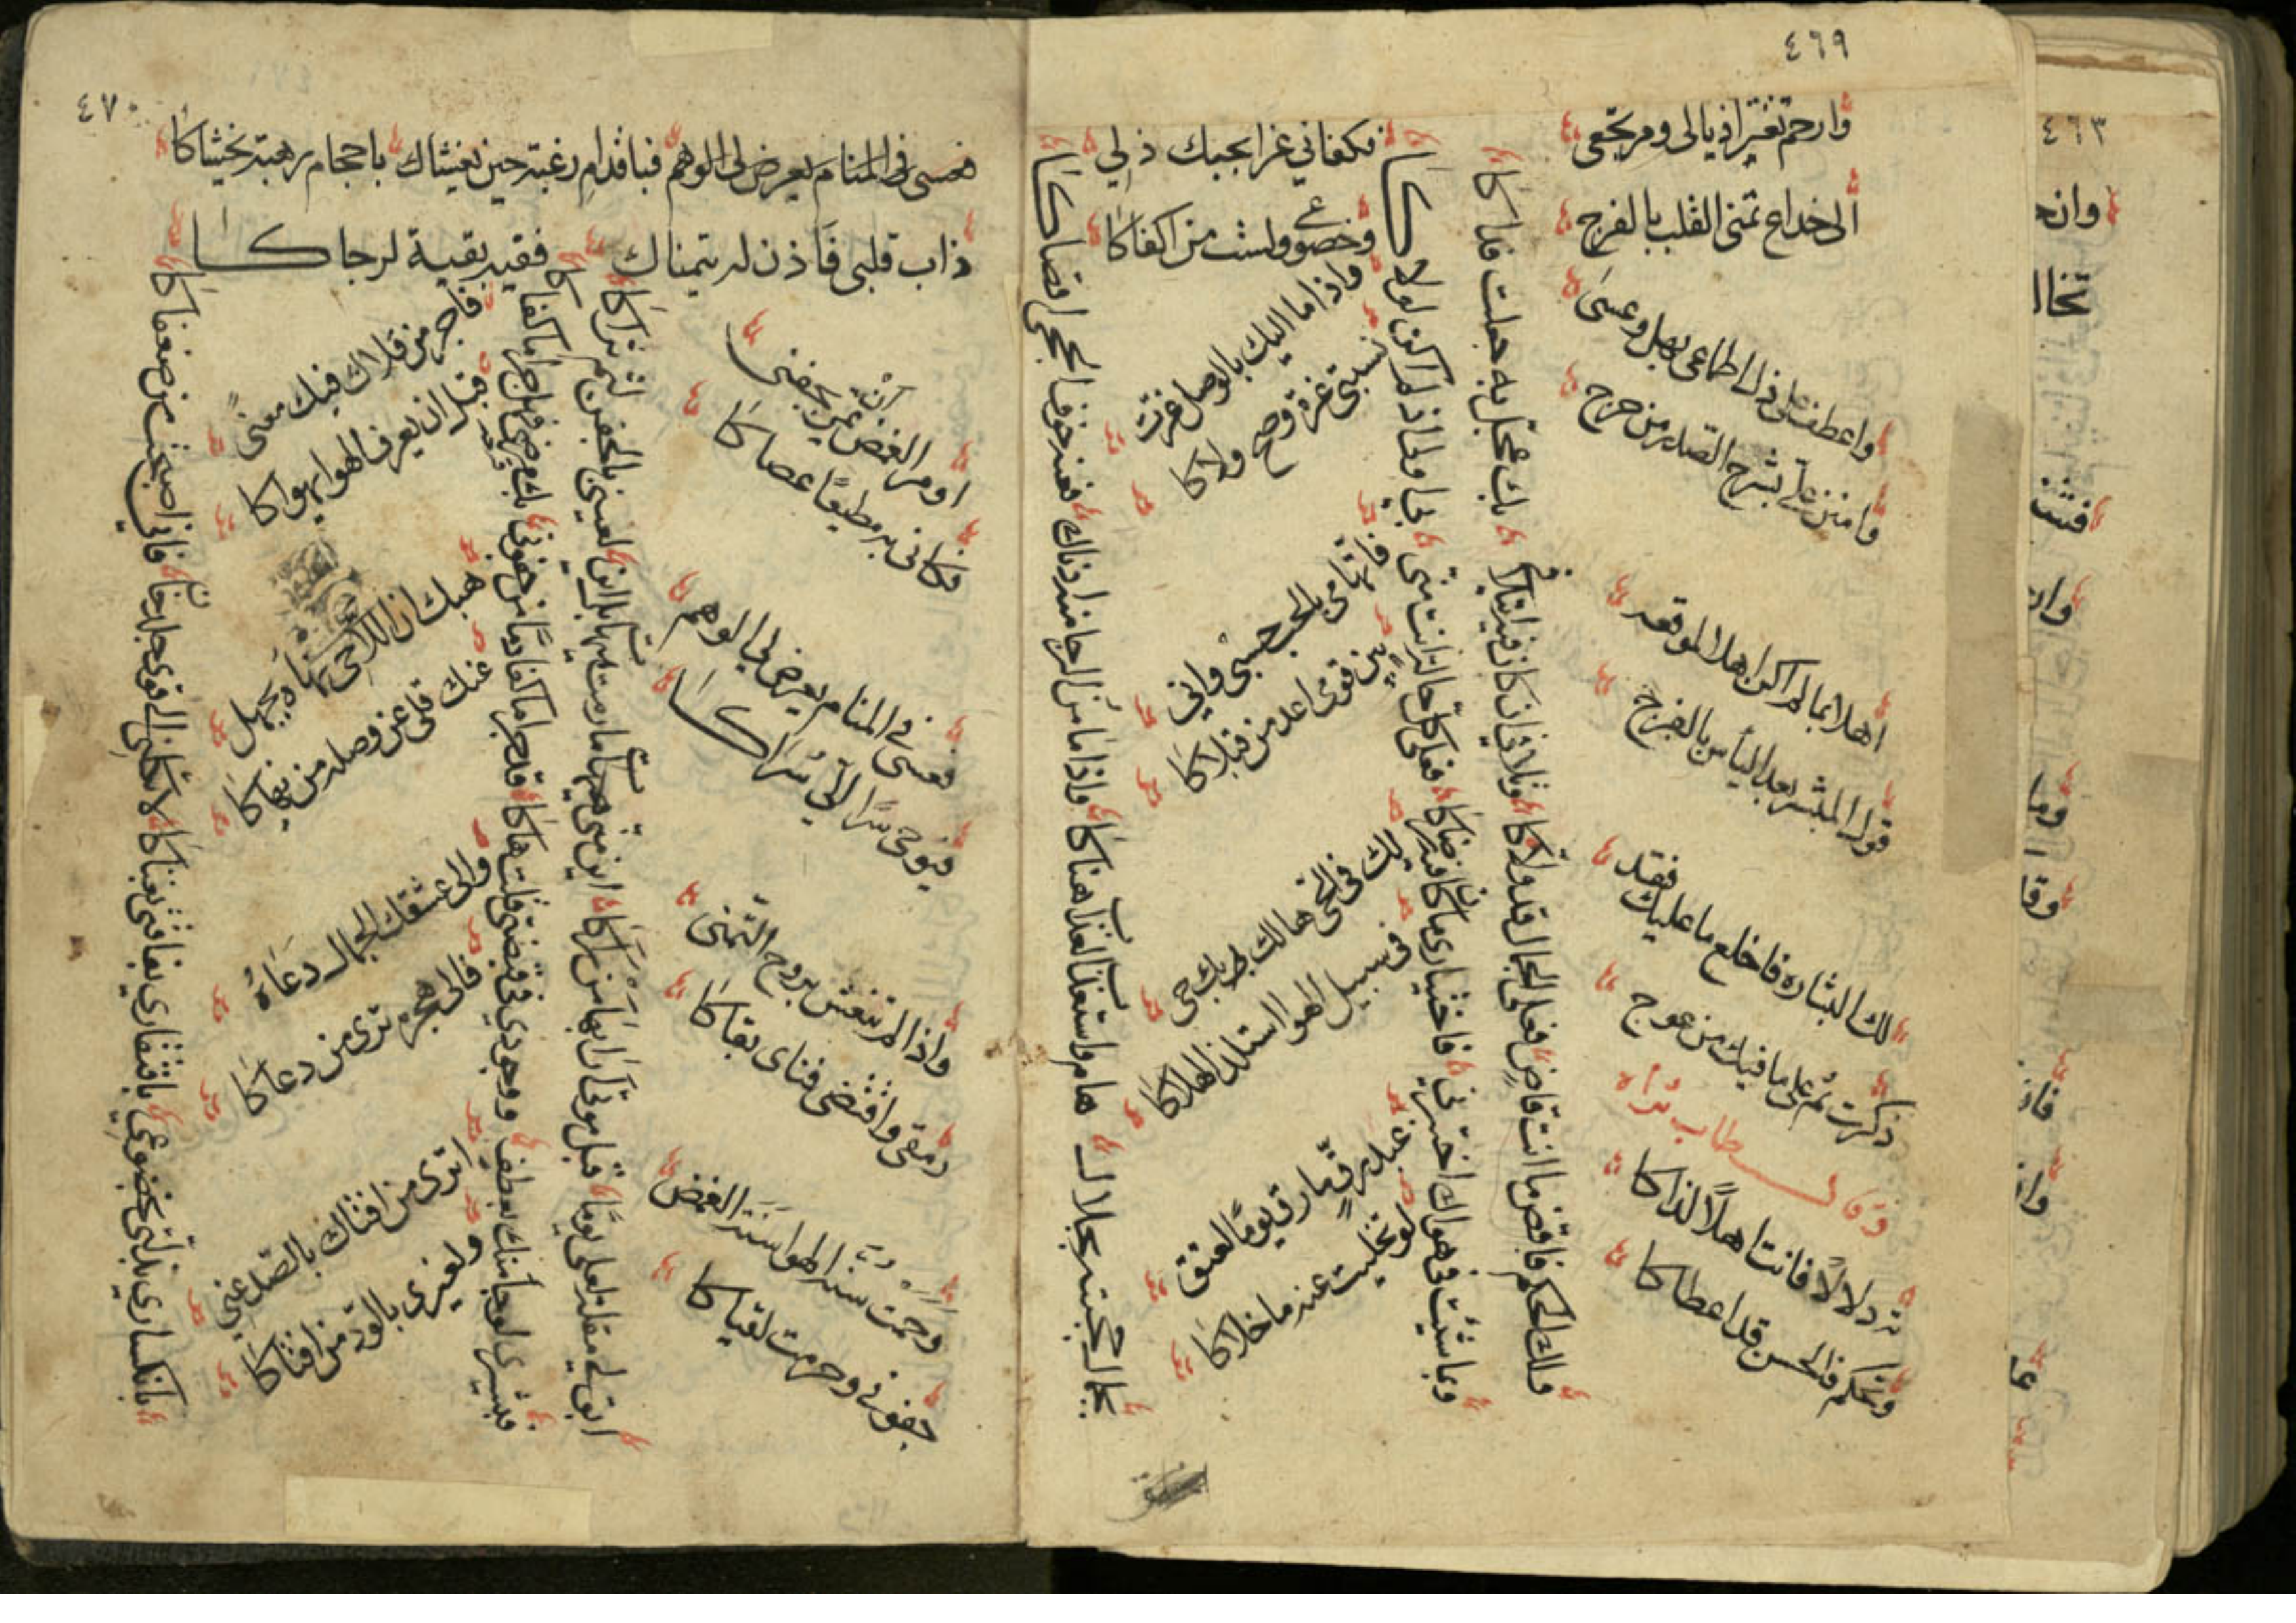 ٤٦٩
وارحم تعثر اذيالي ومرتجعي
الى خداع تمنى القلب بالفرج
واعطف على ذل اطماعي بهل وعسى
وامنن علي بشرح الصدر من حرج
اهلا بما لم اكن اهلا لموقعه
قول المبشر بعد اليأس بالفرج
لك البشاره فاخلع ما عليك فقد
ذكرت ثم على ما فيك من عوج
وقال طاب ثراه
ته دلالا فانت اهلا لذاكا
وتحكم فالحسن قد اعطاكا
ولك الحكم فاقض ما انت قاض
فعلي الجمال قد ولاكا
وتلافي ان كان فيه ائتلافي
بك عجل به جعلت فداكا
وبما شئت في هواك اختبرني
فاختياري ما كان فيه رضاكا
فعلى كل حالة انت مني
بي اولى اذ لم اكن لولاكا
فكفاني عزا بحبك ذلي
وخضوعي ولست من اكفاكا
واذا ما اليك بالوصل عزت
نسبتي عزة وصح ولاكا
فاتهامي بالحب حسبي واني
بين قومي اعد من قتلاكا
لك في الحي هالك بك حي
في سبيل الهوا استلذ الهلاكا
عبد رق ما رق يوما لعتق
لو تخليت عنه ما خلاكا
بجمال حجبته بجلال
هام واستعذب العذاب هناكا
واذا ما من الرجا منه ادناك
فعنه خوف الحجى اقصاكا
٤٧٠
فباقدام رغبة حين يغشاك
باحجام رهبة يخشاكا
ذاب قلبي فأذن له يتمناك
ففيه بقية لرجاكا
او مر الغمض ان يمر بجفني
فكاني به مطيعا عصاكا
فعسى في المنام يعرض لي الوهم
فيوحي سرا الي سراكا
واذا لم تنعش بروح التمني
رمقي واقتضى فناي بقاكا
وحمت سنة الهوا سنة الغمض
جفوني وحرمت لقياكا
ابق لي مقلة لعلي يوما
قبل موتي ارى بها من راكا
اين مني ما رمت هيهات بل اين
لعيني بالجفن لثم ثراكا
فبشيري لو جآ منك بعطف
ووجودي في قبضتي قلت هاكا
قد جرا ما كفا دما من جفوني
بك قرحى فهل جرا ما كفاكا
فاجر من قلاك فيك معنى
قبل ان يعرف الهوا يهواكا
هبك ان اللاحي نهاه بجهل
عنك قل لي عن وصله من نهاكا
والى عشقك الجمال دعاه
فالى هجره ترى من دعاكا
اترى من افتاك بالصد عني
ولغيري بالود من افتاكا
بانكساري بذلتي بخضوعي
بافتقاري بفاقتي بغناكا
لا تكلني الى قوى جلد خان
فاني اصبحت من ضعفاكا